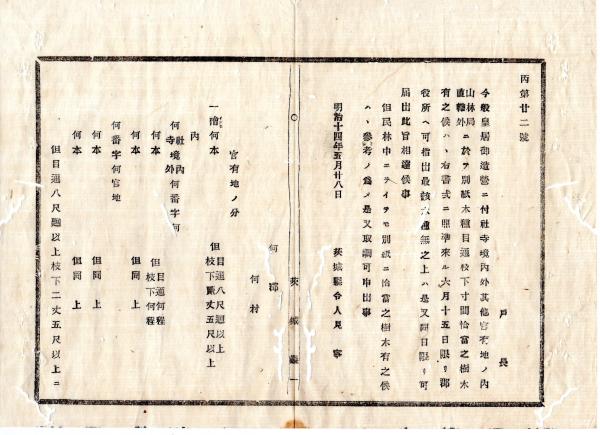 丙第廿二號
戸長
今般皇居御造營ニ付社寺境內外其他官有地ノ內
山林局直轄外ニ於テ別紙木種目通枝下寸間恰當之樹木
有之候ハヽ右書式ニ照準來ル六月十五日限リ郡
役所ヘ可指出最該木種無之上ハ是又同日限リ可
届出此旨相達候事
但民林中ニテイヲモ別紙ニ恰當之樹木有之候
ハヽ參考ノ爲メ是又取調可申出事
明治十四年五月廿八日 茨城縣令人見 寧
茨城縣
何郡
何村
官有地ノ分
一檜何本 但目通八尺廻以上枝下貳丈五尺以上
內
何社寺境內外何番字何
何本 但目通何程枝下何程
何本 但同上
何番字何官地
何本 但同上
何本 但同上
但目通八尺廻以上枝下二丈五尺以上ニ